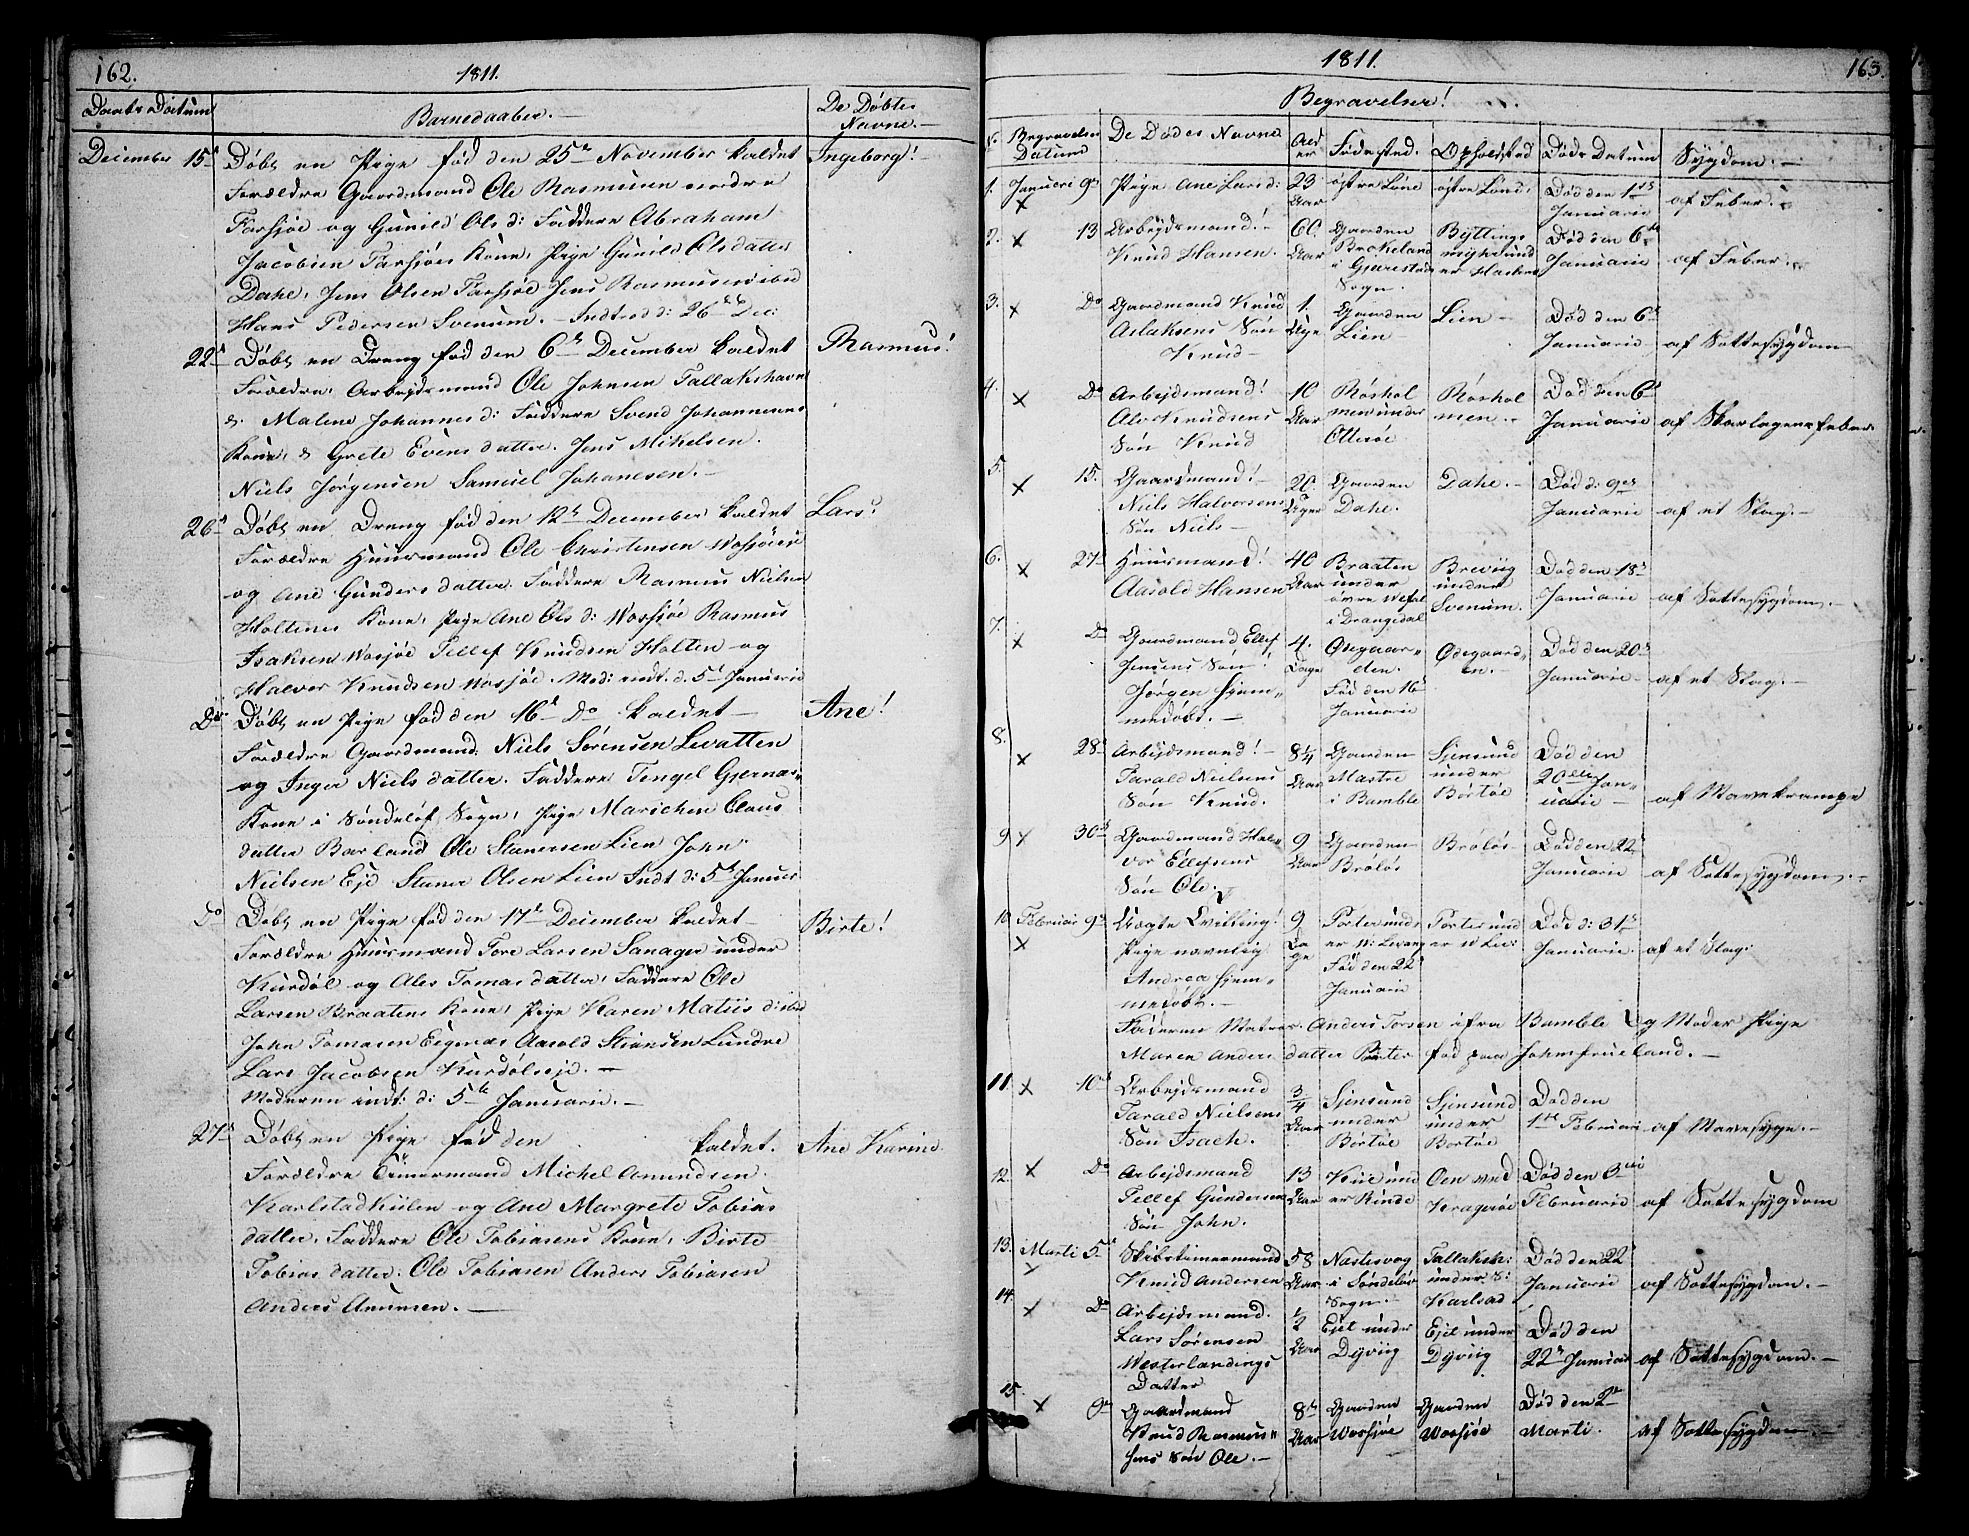 162.
1811.
Daabs Datum
Barnedaaber. —
De Døbtes
Navne. —
December 15de Døbt en Pige fød den 25de November kaldet Ingeborg!
Forældre Gaardmand Ole Rasmusen nordre
Farsjøe og Gunild Ols d: Faddere Abraham
Jacobsen Farsjøes Kone, Pige Gunild Olsdatter
Dahe, Jens Olsen Farsjøe Jens Rasmusen ibid
Hans Pedersen Svenum. — Indtrod d: 26de Dec:
22de Døbt en Dreng fød den 6de December kaldet Rasmus!
Forældre, Arbejdsmand Ole Johnsen Tallakshavn
&. Malene Johannes d: Faddere Svend Johannesens
Kone, & Grete Evens datter. Jens Mikelsen.
Niels Jørgensen Samuel Johanesen. —
26de Døbt en Dreng fød den 12te December kaldet Lars!
Forældre Huusmand Ole Christensen Wosjøeie
og Ane Gunders datter. Faddere Rasmus Nielsen
Holtenes Kone, Pige Ane Ols d: Wosjøe Rasmus
Isaksen Wosjøe Tellef Knudsen Holten og
Halvor Knudsen Wosjøe. Mod: indt. d. 5te Januarii
Do Døbt en Pige fød den 16de Do kaldet — Ane!
Forældre Gaardmand: Niels Sørensen Levatten
og Inger Niels datter. Faddere Tengel Gjernes
Kone i Søndeløf Sogn, Pige Marichen Claus
datter Barland Ole Stenersen Lien John
Nielsen Ejd Stener Olsen Lien Indt d: 5te Januar
Do Døbt en Pige fød den 17de December kaldet — Birte!
Forældre Huusmand Tore Larsen Sanager under
Kurdøl og Ales Tomas datter, Faddere Ole
Larsen Braatens Kone, Pige Karen Matiis d: ibid
John Tomasen Eigenas Aasold Stiansen Lundre
Lars Jacobsen Kurdølseje. —
Moderen indt: d: 5te Januarii. —
27de Døbt en Pige fød den kaldet. Ane Karine
Forældre Tømermand Michel Amundsen
Karlstadkiilen og Ane Margrete Tobias
datter, Faddere Ole Tobiasens Kone, Birte
Tobias datter. Ole Tobiasen Anders Tobiasen
Anders Anunsen. —
1811.
163.
Begravelser!
No Begravelses Datum De Dødes Navne Alder Fødested. Opholdsted Døds Datum Sygdom. —
1. Januari 9de Pige Ane Lars d: 23 Aar østre Løne østre Lønd: Død den 1ste Januarie af Feber.
2. 13 Arbejdsmand! Knud Hansen. 60 Aar Gaarden Brokeland i Gjerestads Sogn. Byttings under Død den 6te Januarie af Feber.
3. Do Gaardmand Knud Aslaksens Søn Knud 1. Uge Gaarden Lien Lien Død den 6te Januarie af Sottesygdom
4. Do Arbejdsmand! Knudsens Søn Knud 10 Aar Røshol men under Otterøe Røshol men. Død den 6te Januarie af Skarlagensfeber
5. 15. Gaardmand! Niels Halvorsens Søn Niels 20. Uger Gaarden Dahe. Dahe. Død d: 9de Januarie af et Slag. —
6. 27de Huusmand! Aasold Hansen 40 Aar Braaten under øvre Wefal i Drangedal Breviig under Svenum. Død den 18de Januarie af Sottesygdom. —
7. Do Gaardmand Ellef Jensens Søn Jørgen hjemmedøbt. — 4. Dage Øegaarden. Fød den 16de Januarie Ødegaarden. Død den 20de Januarie af et Slag. —
8. 28de Arbejdsmand! Tarald Nielsens Søn Knud. 8 1/4 Aar Gaarden Mastre i Bamble Sjensund under Bortøe Død den 20de Januarie af Mavekrampe
9. 30de Gaardmand Halvor Ellefsens Søn Ole. 9 Aar Gaarden Brøløs Brøløs Død den 22de Januarie af Sottesygdom. —
10. Februar 9de Uægte Tvilling! Pige navnlig Andrea hjemmedøbt. — 9 Dage Porter under Fød den 22de Januarie Porter und er Død d: 31te Januarie af et Slag.
Faderen Matros. Anders Torsen ifra Bamble Og Moder Pige
Maren Anders datter Porter fød paa Johmfrueland. —
11 10de Arbejdsmand Tarald Nielsens Søn Isach. 3/4 Aar Sjensund under Bortøe Sjensund under Bortøe Død den 1ste Februari af Mavesyge. —
12. Do Arbejdsmand Tellef Gundersens Søn John. 13 Aar Kiil und er Rinde Oen ved Kragerøe Død den 3die Februarie af Sottesygdom
13. Marti 5te Skibstømermand Knud Andersen 58 Aar Nastesvog i Søndeløv Sogn. Tallaksh: under S: Karlsad Død den 22de Januarie af Sottesygdom. —
14. Do Arbejdsmand. Lars Sørensen Westerlandings Datter 1/2 Aar Ejet under Dyviig Ejet under Dyviig Død den 22de Januar af Sottesygdom. —
15. Gaardmand Knud Rasmussens Søn Ole. — 8 1/2 Aar Gaarden Wosjøe Gaarden Wosjøe Død den 2de Marti. af Sottesygdom. —